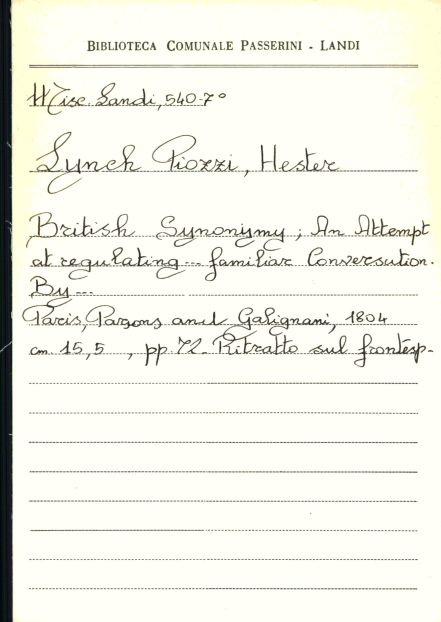 BIBLIOTECA COMUNALE PASSERINI - LANDI
Misc. Landi, 540-7°
Lynch Piozzi, Hester
British Synonymy ; An Attempt
at regulating --- familiar Conversation.
By ---
Paris, Parsons and Galignani, 1804
cm. 15,5 , pp. 72 - Ritratto sul frontesp-